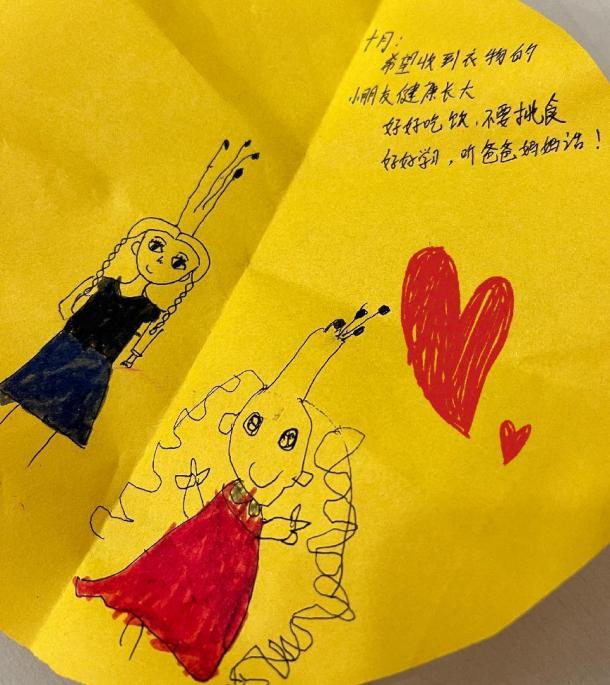 十月：
希望收到衣物的
小朋友健康长大
好好吃饭，不要挑食
好好学习，听爸爸妈妈话！